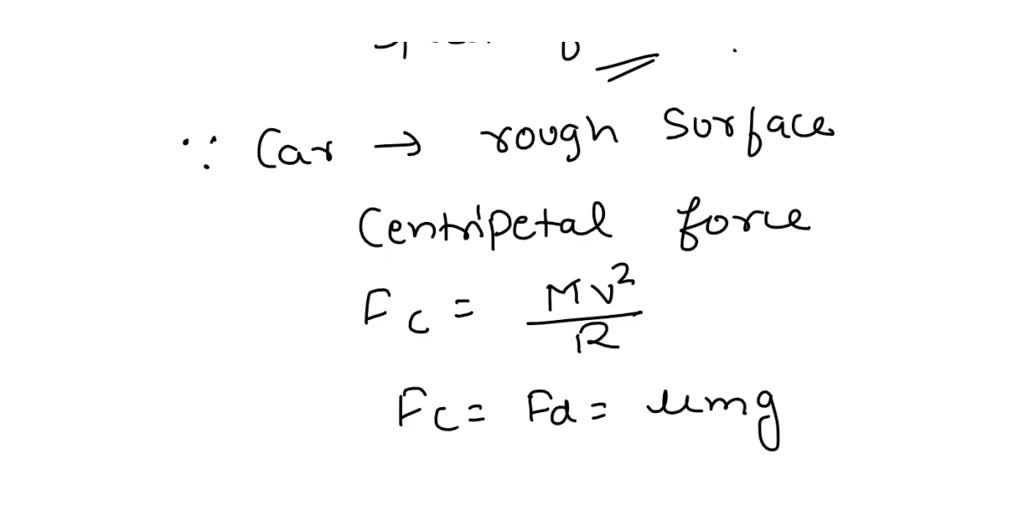 ∵ Car → rough Surface
Centripetal force
Fc = MV²/R
Fc = Fd = μmg